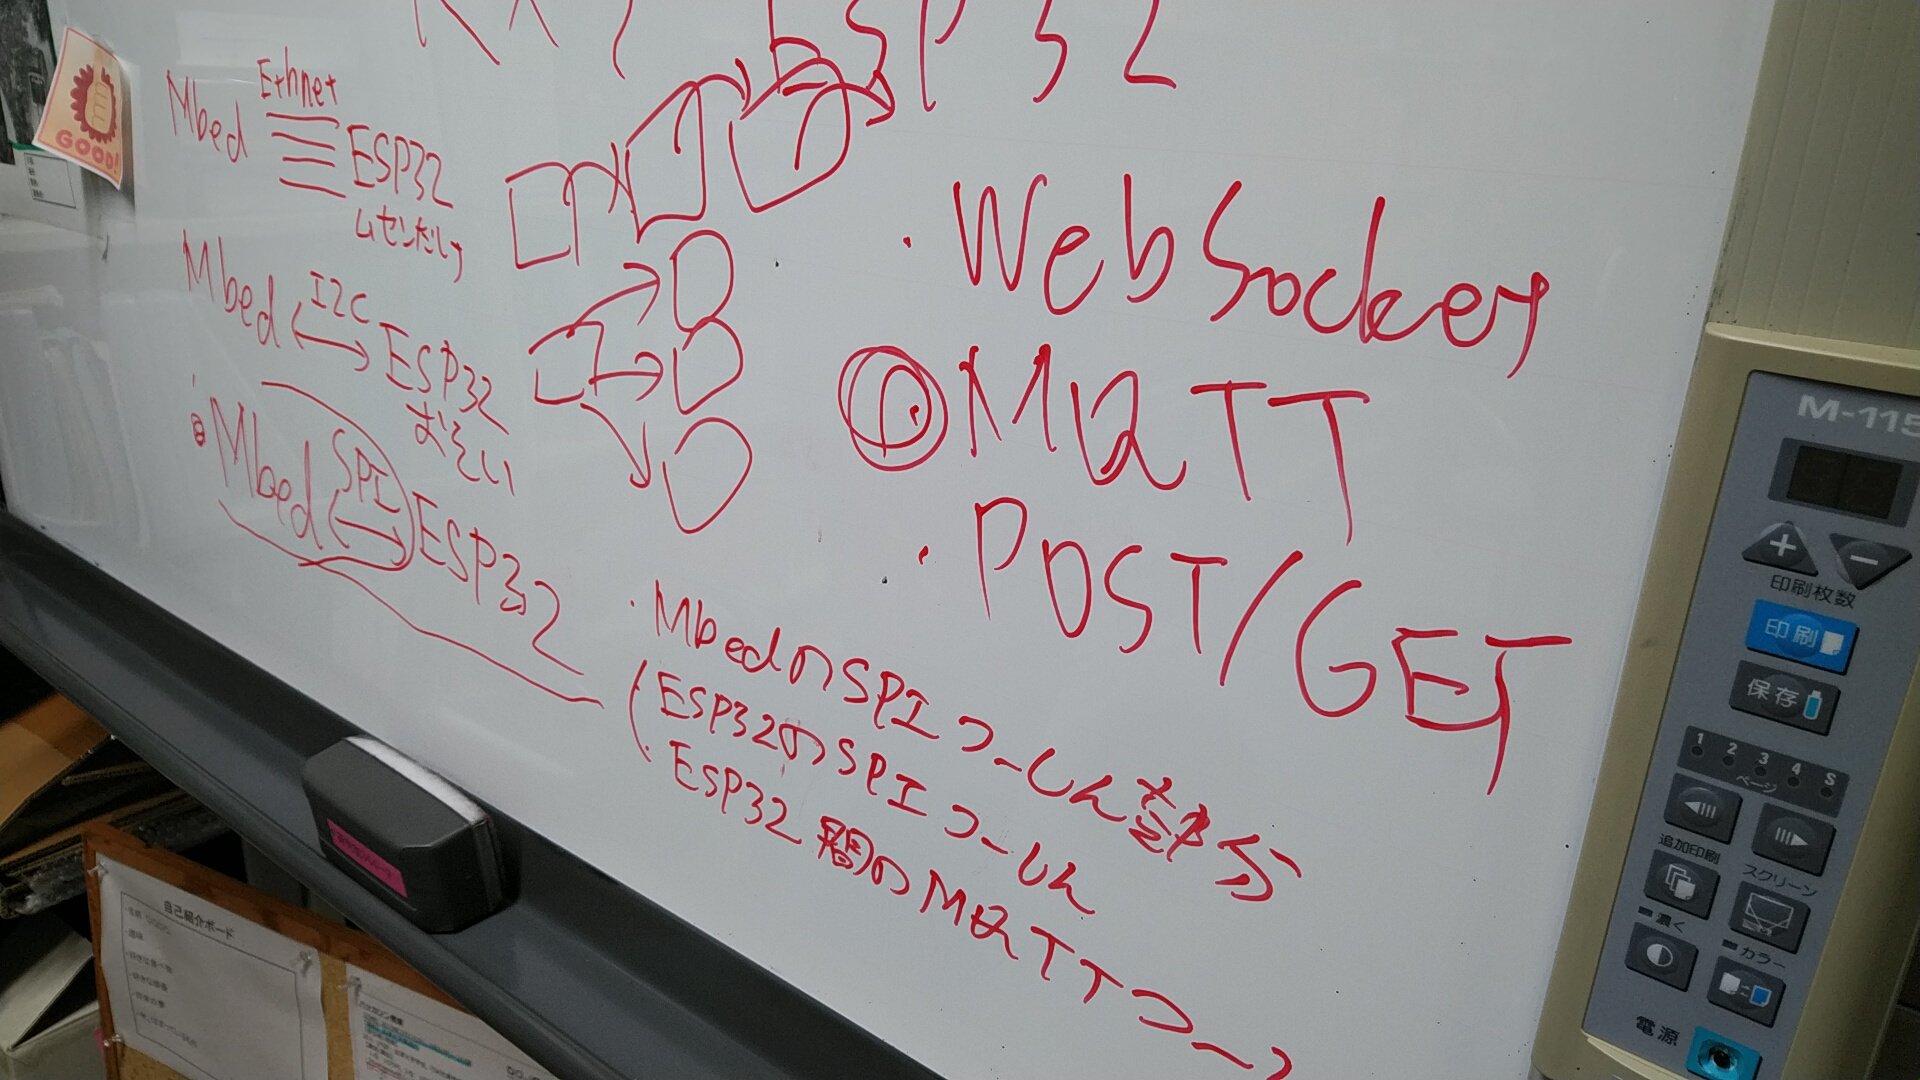 ESP32
GOOD!
Mbed Ethnet ESP32
ムセンだけ
Mbed I2C ESP32
おそい
Mbed SPI ESP32
・WebSocket
MQTT
・POST/GET
・MbedのSPIつーしん部分
ESP32のSPIつーしん
ESP32間のMQTTつー
M-115
印刷枚数
印刷
保存
1 2 3 4 S
ページ
追加印刷
スクリーン
濃く
カラー
電源
自己紹介ボード